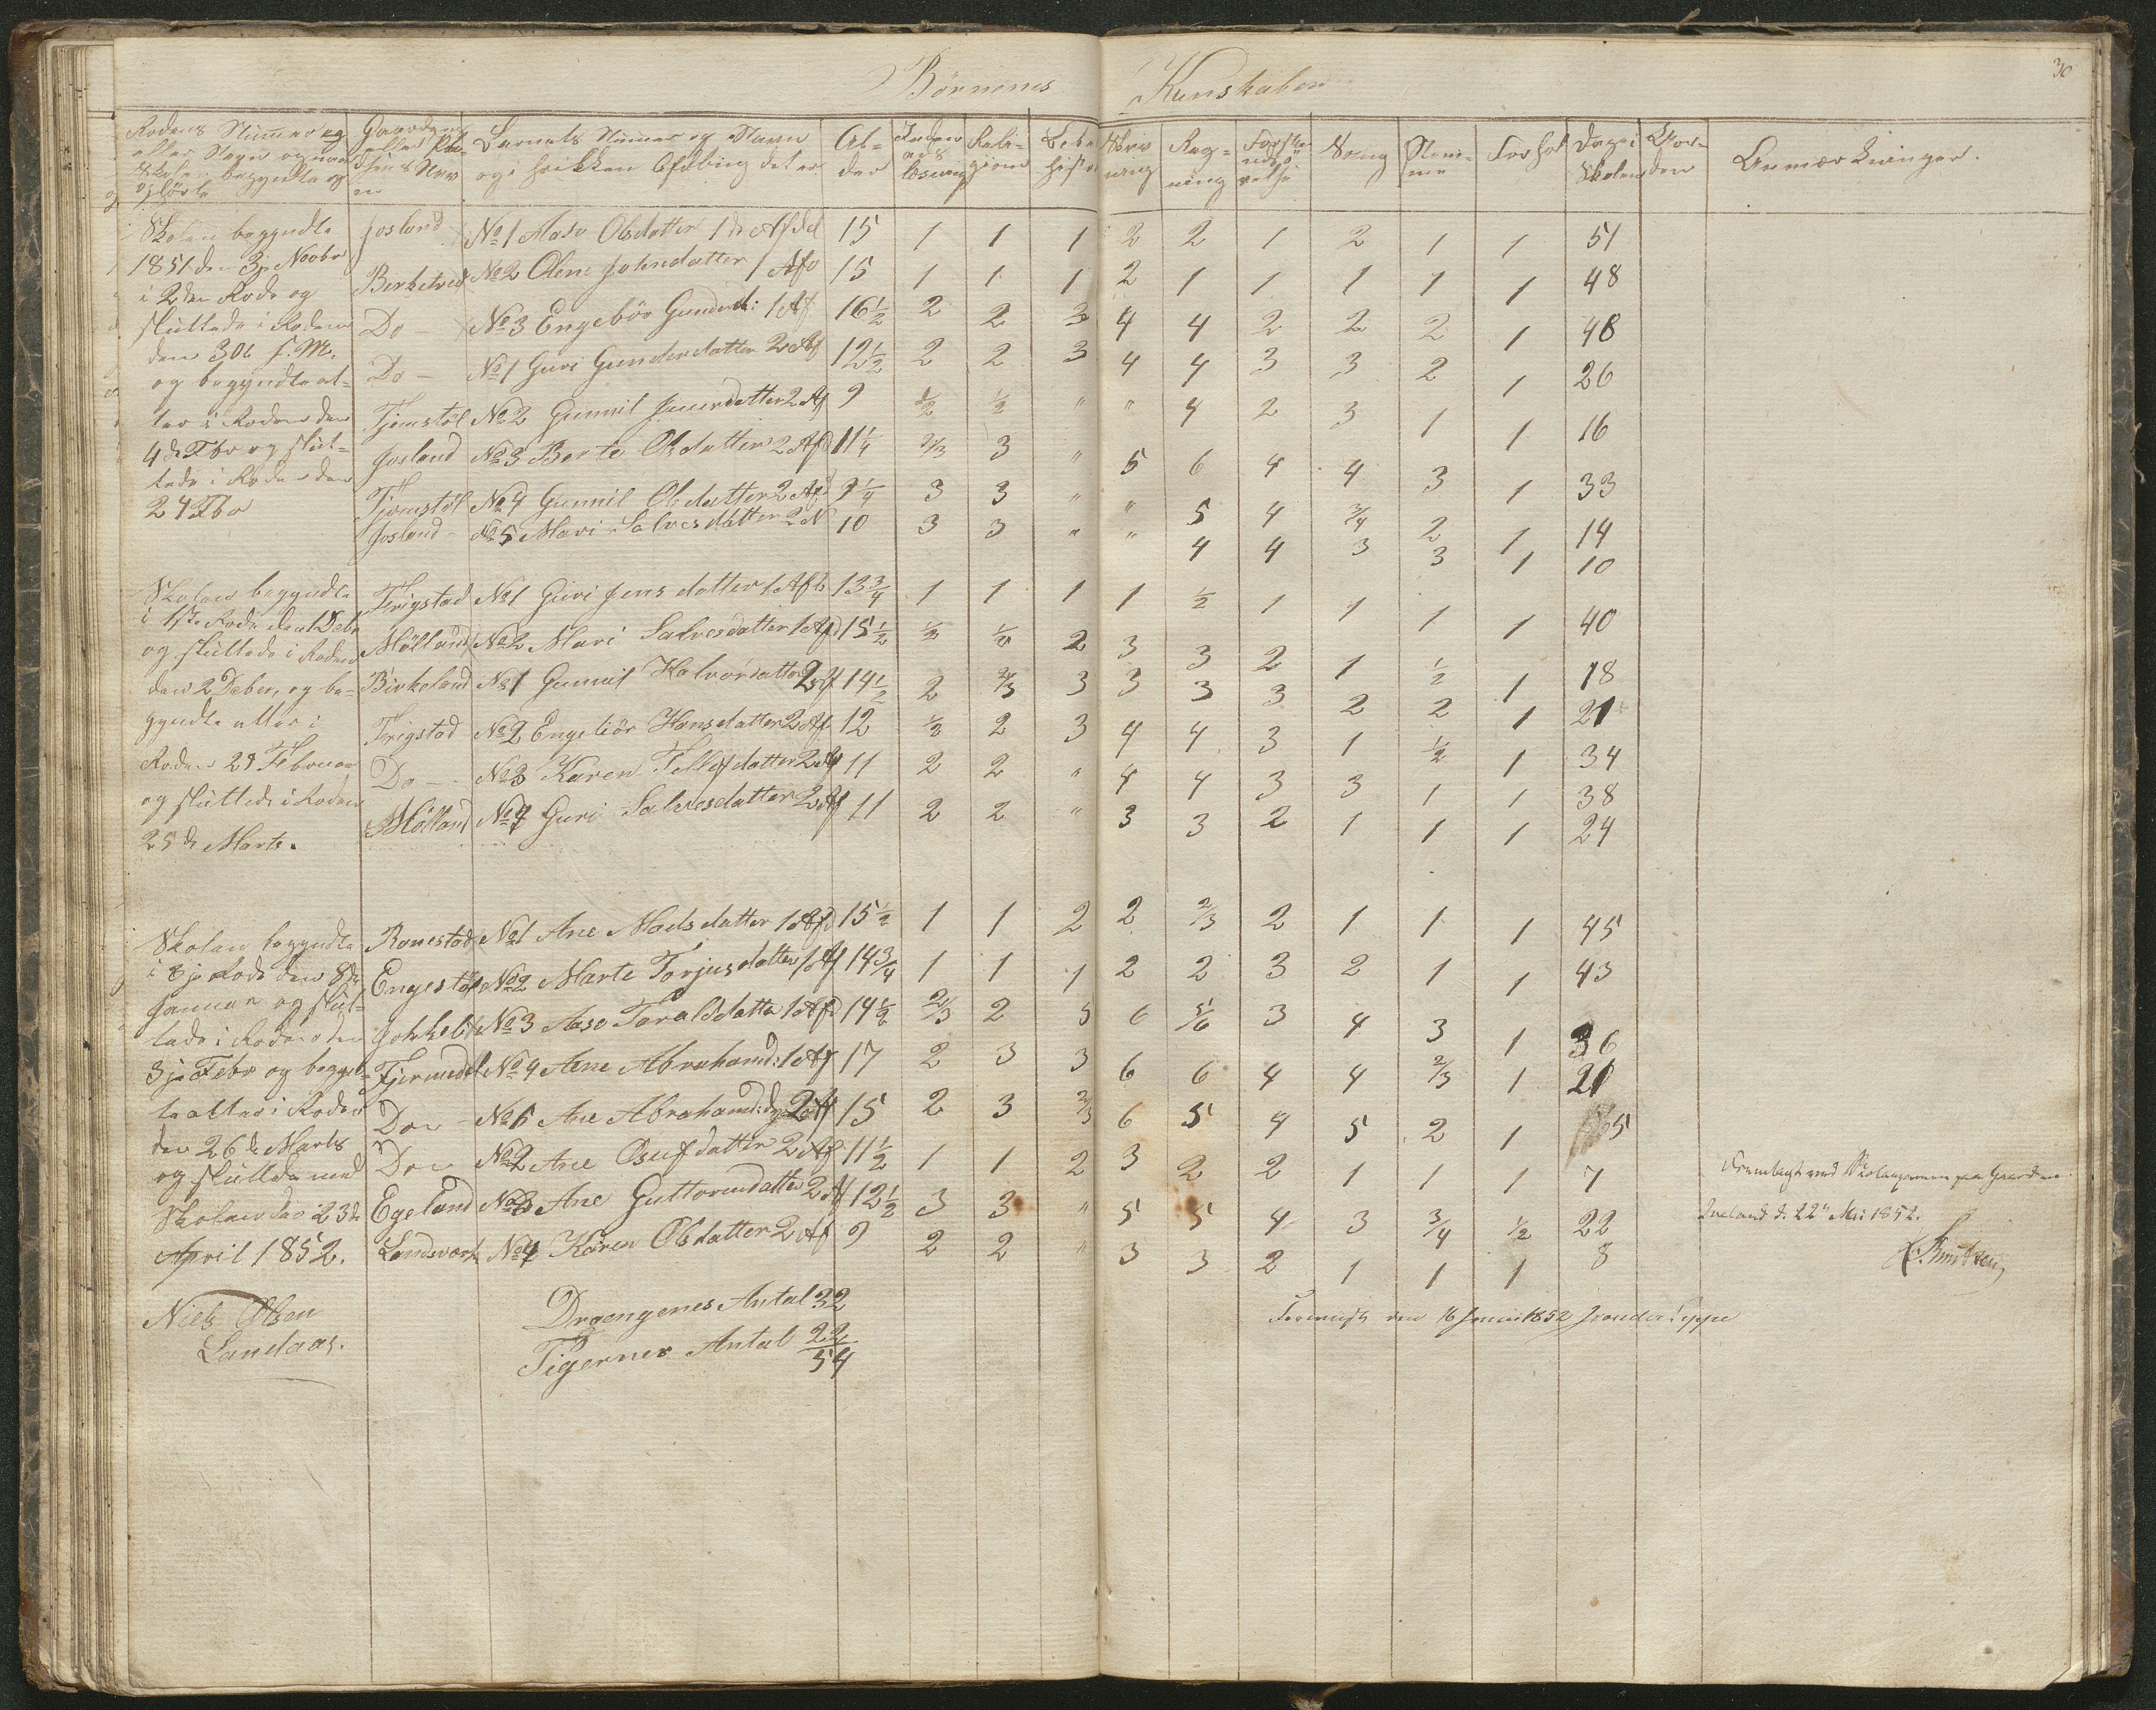 30
Börnenes Kunskaber
Rodens Nummer og Gaardens Barnets Nummer og Navn Al- Religions Skriv Reg- Sang Stem- Forhol Dage i Anmærkninger.
eller Navn og naar og i hvilken Afdeling det er der ning ning me Skolen
Skolen begyndte og
Skolen begyndte
1851 den 3je Novbr
i 2den Rode og
sluttede i Roden
den 30te s. M.
og begyndte at-
ter i Roden den
4de Fbr og slut-
tede i Roden den
24 Fbr
Josland No 1 Aase Olsdatter 1ste Afdel 15 1 1 1 2 2 1 2 1 1 51
Birketved No 2 Olene Johnsdatter 1 Afd 15 1 1 1 2 1 1 1 1 1 48
Do No 3 Engebör Gundersd: 1 Af 16½ 2 2 3 4 4 2 2 2 1 48
Do No 1 Guri Gundersdatter 2 Af 12½ 2 2 3 4 4 3 3 2 1 26
Tjomstöl No 2 Gunnil Jensdatter 2 Af 9 ½ ½ " " 4 2 3 1 1 16
Josland No 3 Berte Olsdatter 2 Afd 11¼ 2/3 3 " 5 6 4 4 3 1 33
Tjomstöl No 4 Gunnil Olsdatter 2 Afd 9¼ 3 3 " " 5 4 3/4 2 1 14
Josland No 5 Mari Salvesdatter 2 Af 10 3 3 " " 4 4 3 3 1 10
Skolen begyndte
i 1ste Rode den 1 Debr
og sluttede i Roden
den 2 Deber, og be-
gyndte atter i
Roden 29 Februar
og sluttede i Roden
25de Marts.
Frigstad No 1 Guri Jensdatter 1 Afd 13¾ 1 1 1 1 ½ 1 1 1 1 40
Mölland No 2 Mari Salvesdatter 1 Afd 15½ ½ ½ 2 3 3 2 1 ½ 1 18
Birkeland No 1 Gunnil Halvorsdatter 2 Af 14½ 2 2/3 3 3 3 3 2 2 1 21
Frigstad No 2 Engebör Hansdatter 2 Af 12 ½ 2 3 4 4 3 1 ½ 1 34
Do No 3 Karen Tellefsdatter 2 Af 11 2 2 " 4 4 3 3 1 1 38
Mölland No 4 Guri Salvesdatter 2 Af 11 2 2 " 3 3 2 1 1 1 24
Skolen begyndte
i 3je Rode den 8de
Januar og slut-
tede i Roden den
3je Febr og begynd-
te atter i Roden
den 26de Marts
og sluttede med
Skolen den 23de
April 1852.
Ronestad No 1 Ane Madsdatter 1 Afd 15½ 1 1 2 2 2/3 2 1 1 1 45
Engestöl No 2 Marte Torjusdatter 1 Af 14¾ 1 1 1 2 2 3 2 1 1 43
No 3 Aase Taraldsdatter 1 Afd 14½ 2/3 2 5 6 5/6 3 4 3 1 36
Fjermedal No 4 Ane Abrahamsd: 1 Af 17 2 3 3 6 6 4 4 2/3 1 21
Do No 1 Ane Abrahamsd: 2 Af 15 2 3 2/3 6 5 4 5 2 1 5
Do No 2 Ane Osufsdatter 2 Af 11½ 1 1 2 3 2 2 1 1 1 7
Egeland No 3 Ane Guttormsdatter 2 Af 12½ 3 3 " 5 5 4 3 3/4 ½ 22
Landsverk No 4 Karen Olsdatter 2 Af 9 2 2 " 3 3 2 1 1 1 8
Niels Olsen
Landaas.
Drængenes Antal 32
Pigernes Antal 22
54
Fremlagt ved paa Gaarden
d. 22de Mai 1852.
Knutsen
den 16 Juni 1852